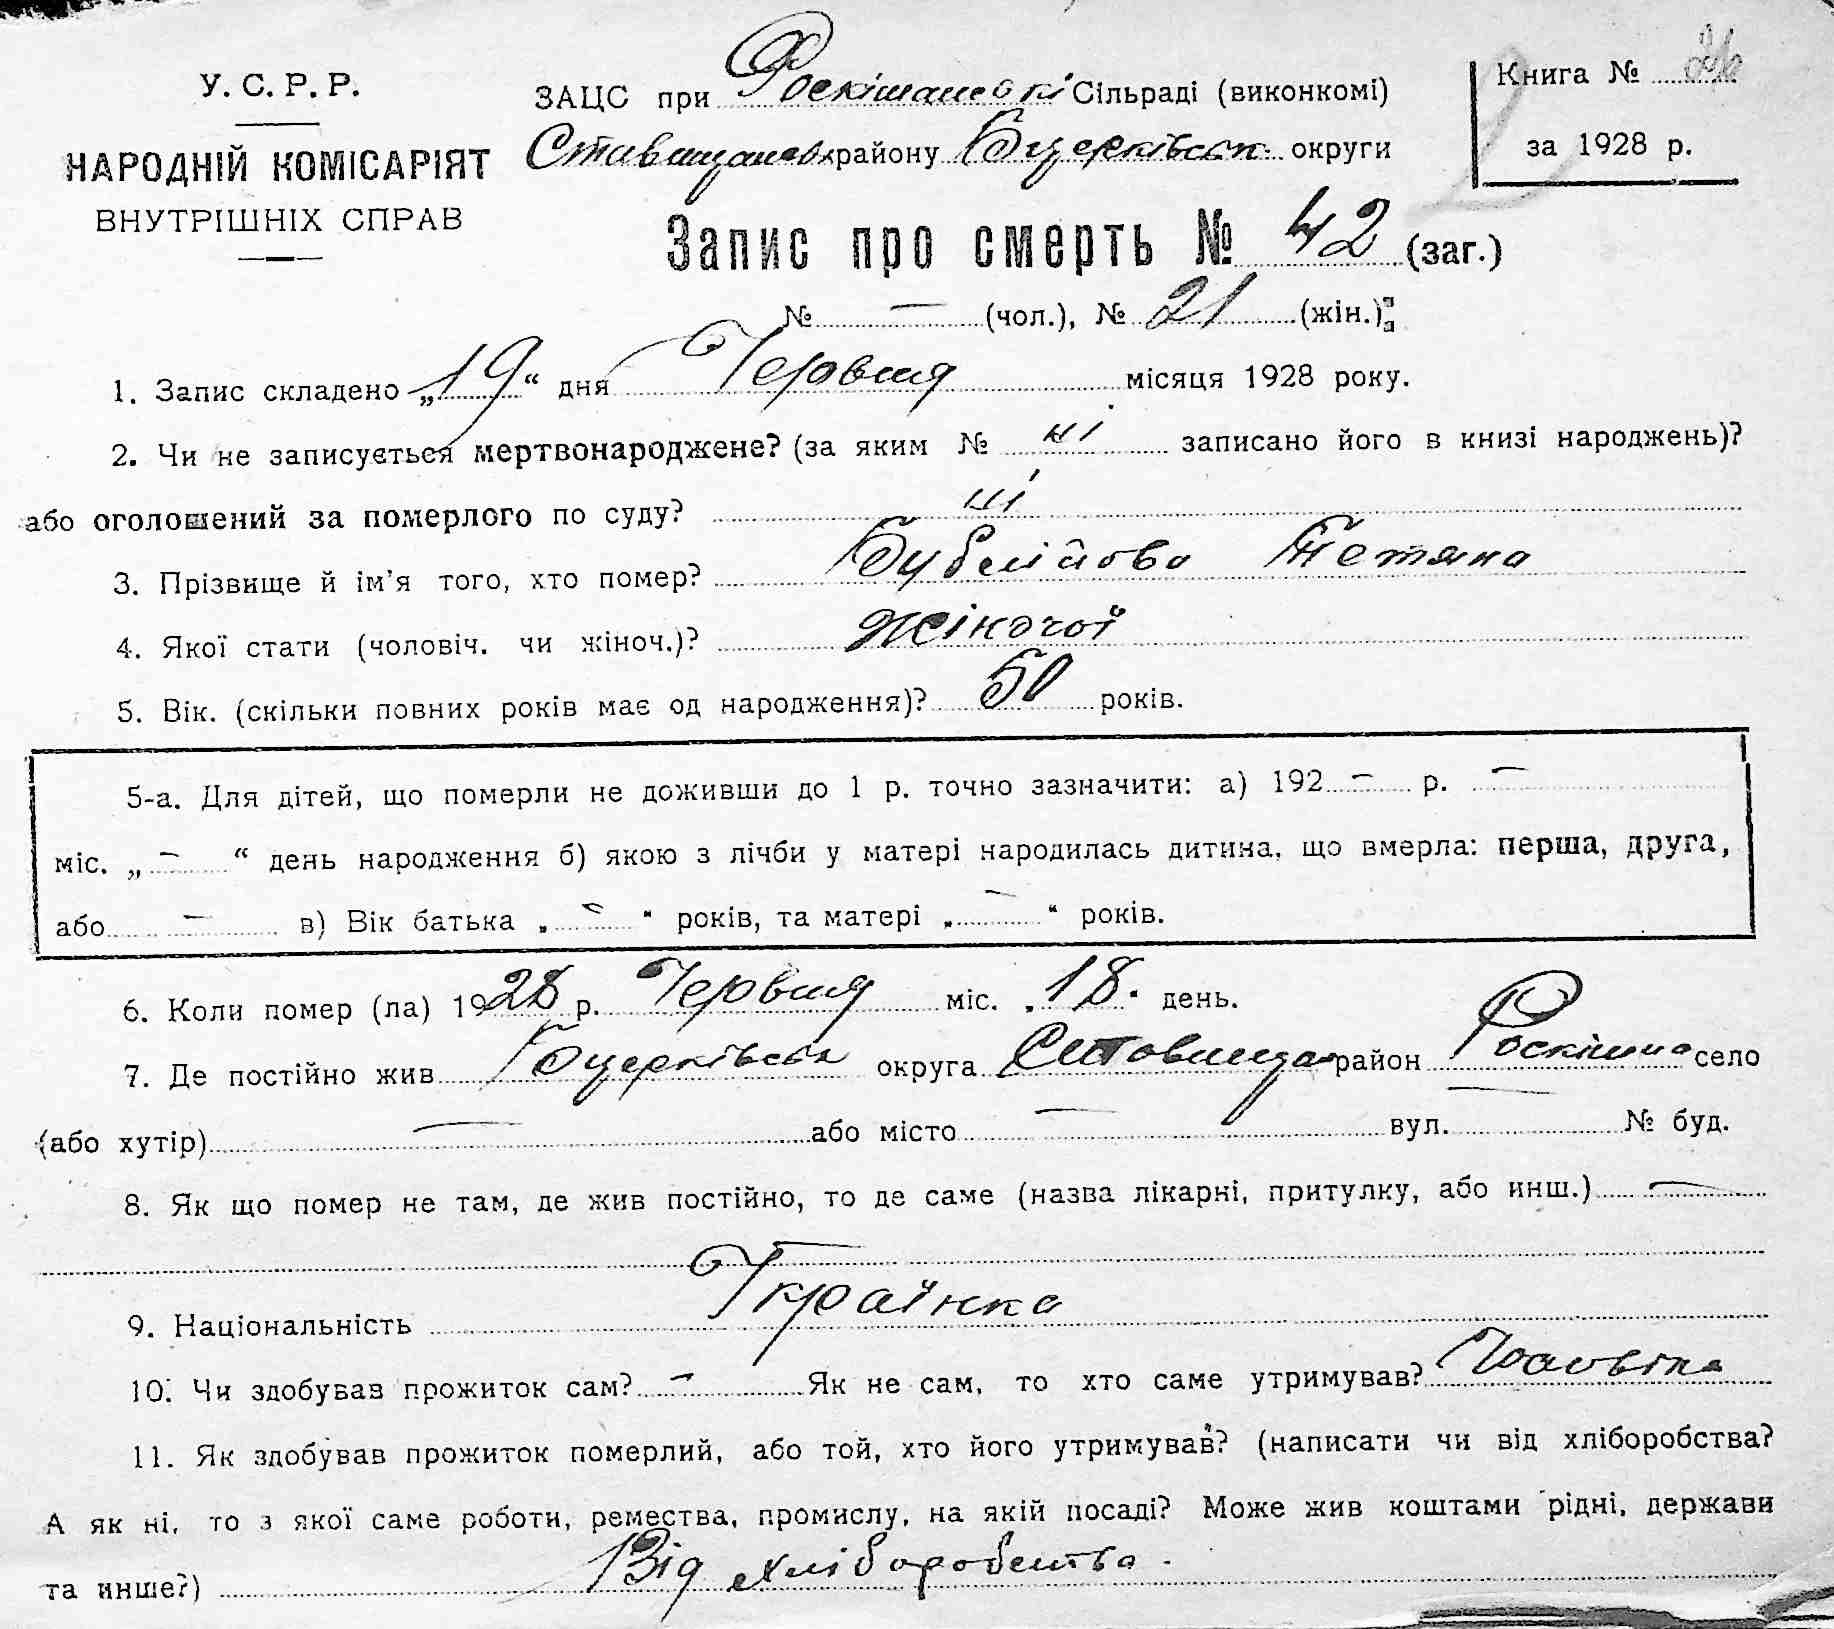 У. С. Р. Р.
НАРОДНІЙ КОМІСАРІЯТ
ВНУТРІШНІХ СПРАВ
ЗАЦС при Роскішанські Сільраді (виконкомі)
Ставищанськ району Б церківськ округи
Книга №
за 1928 р.
Запис про смерть № 42 (заг.)
№ — (чол.), № 21 (жін.)
1. Запис складено „19“ дня Червня місяця 1928 року.
2. Чи не записується мертвонароджене? (за яким № ні записано його в книзі народжень)?
або оголошений за померлого по суду? ні
3. Прізвище й ім'я того, хто помер? Бублійова Тетяна
4. Якої стати (чоловіч. чи жіноч.)? жіночої
5. Вік. (скільки повних років має од народження)? 50 років.
5-а. Для дітей, що померли не доживши до 1 р. точно зазначити: а) 192 — р. —
міс. „ — “ день народження б) якою з лічби у матері народилась дитина, що вмерла: перша, друга,
або — в) Вік батька „ — “ років, та матері „ — “ років.
6. Коли помер (ла) 1928 р. Червня міс. „18“ день.
7. Де постійно жив Б церківськ округа Ставища район Роскішна село
(або хутір) — або місто — вул. — № буд.
8. Як що помер не там, де жив постійно, то де саме (назва лікарні, притулку, або инш.) —
9. Національність Українка
10. Чи здобував прожиток сам? — Як не сам, то хто саме утримував? Чоловіка
11. Як здобував прожиток померлий, або той, хто його утримував? (написати чи від хліборобства?
А як ні, то з якої саме роботи, ремества, промислу, на якій посаді? Може жив коштами рідні, держави
та инше?) Від хліборобства.